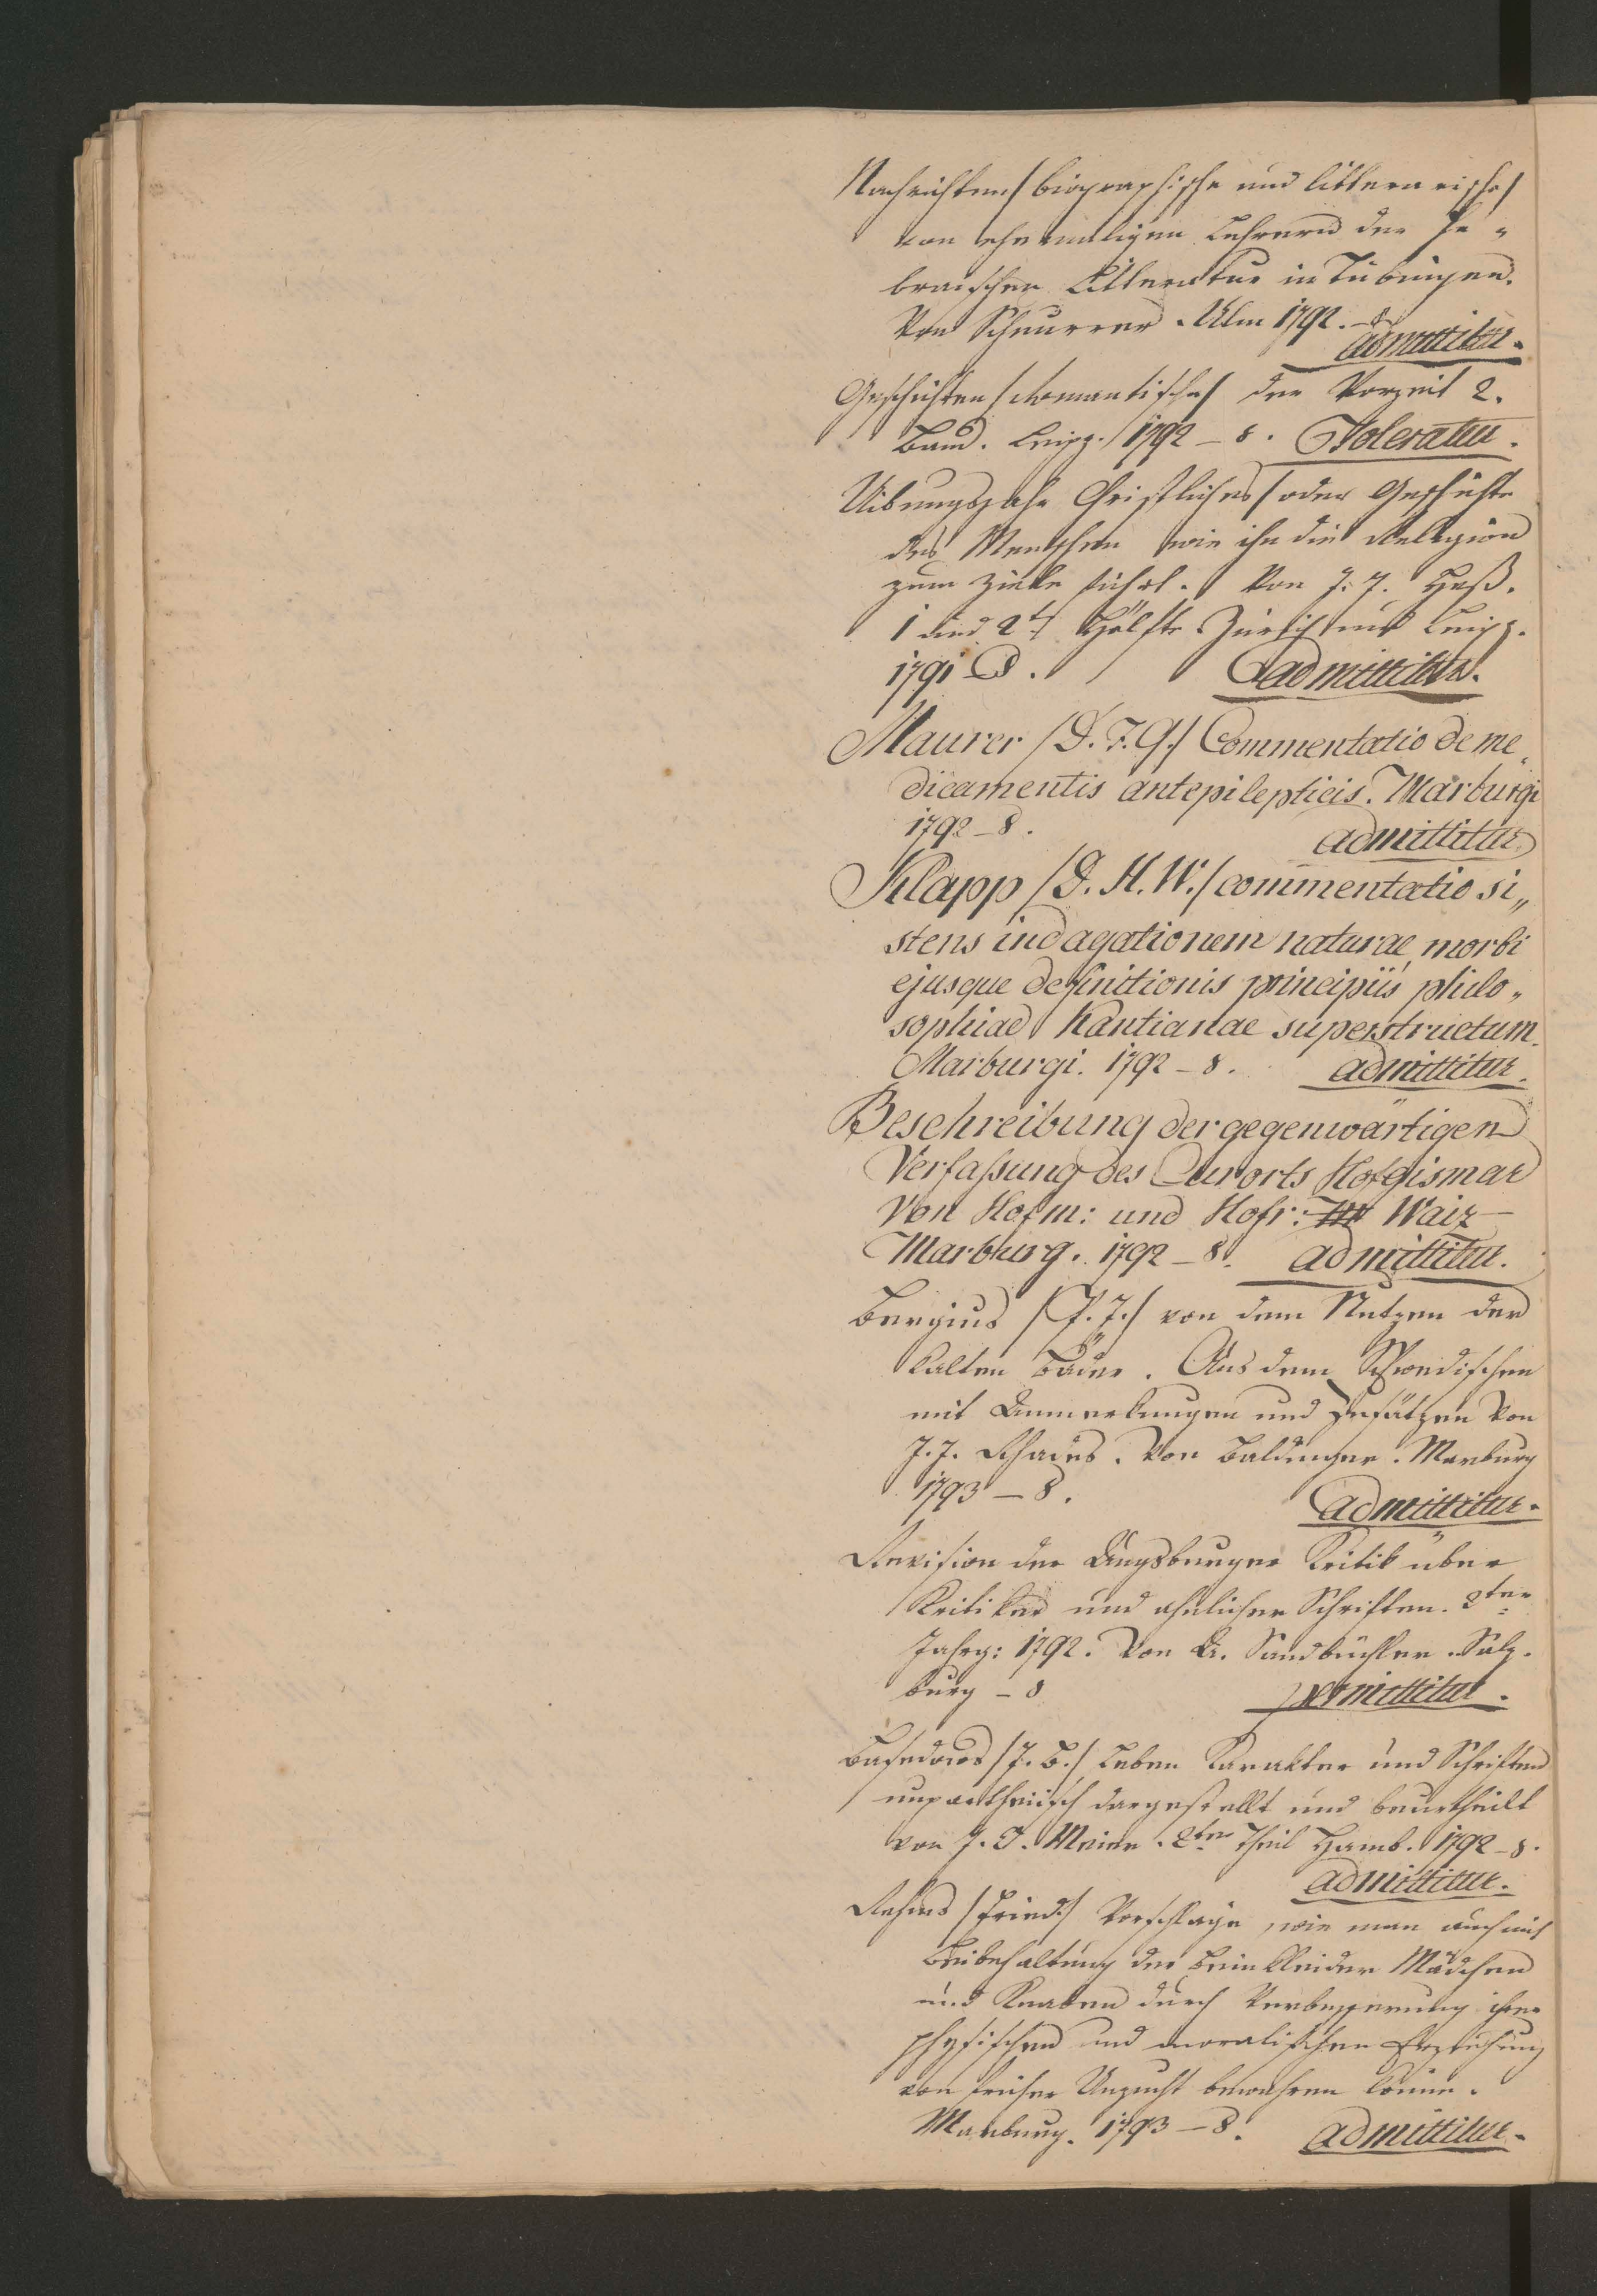 Nachrichten /biographische und litterarische/
von ehemaligen Lehrern der he„
braischen Litteratur in Tübingen.
Von Schnurrer. Ulm 1792. – 8
admittitur.
Geschichten /romantische/ der Vorzeit 2.
Band. Leipz. 1792 – 8. Toleratur.
Uibungsjahr Christliches / oder Geschichte
des Menschen wie ihn die Religion
zum Ziele führt. Von J. J. Heß.
1 und 2te Hälfte Zürich und Leipz.
1791 – 8. admittitur.
Maurer /D. F. G./ Commentatio de me„
dicamentis antepilepticis. Marburgi
1792 – 8. admittitur
Klapp /D. H. W./ commentatio si„
stens indagationem naturae morbi
ejusque definitionis principiis philo„
sophiae Kantianae superstructum.
Marburgi. 1792 – 8. admittitur.
Beschreibung der gegenwärtigen
Verfaßung des Curorts Hofgismar
Von Hofm: und Hofr: Waiz –
Marburg. 1792 – 8. admittitur.
Bergius /P. J./ von dem Nutzen der
kalten Bäder. Aus dem Schwedischen
mit Anmerkungen und Zusätzen von
J. J. Rhades. Von Baldinger. Marburg
1793 – 8. admittitur.
Revision der Augsburger Kritik über
Kritiker und ähnlicher Schriften. 2ter
Jahrg: 1792. Von A. Sandbüchler. Salz„
burg – 8 permittitur.
Basedows /J. B./ Leben Karakter und Schriften
unpartheiisch dargestellt und beurtheilt
von J. C. Meier. 2ter Theil Hamb. 1792 – 8.
admittitur.
Rehms /Fried:/ Vorschläge, wie man auch mit
Beibehaltung der Beinkleider Mädchen
und Knaben durch Verbesserung ihrer
physischen und moralischen Erziehung
von früher Unzucht bewahren könne.
Marburg. 1793 – 8. admittitur.